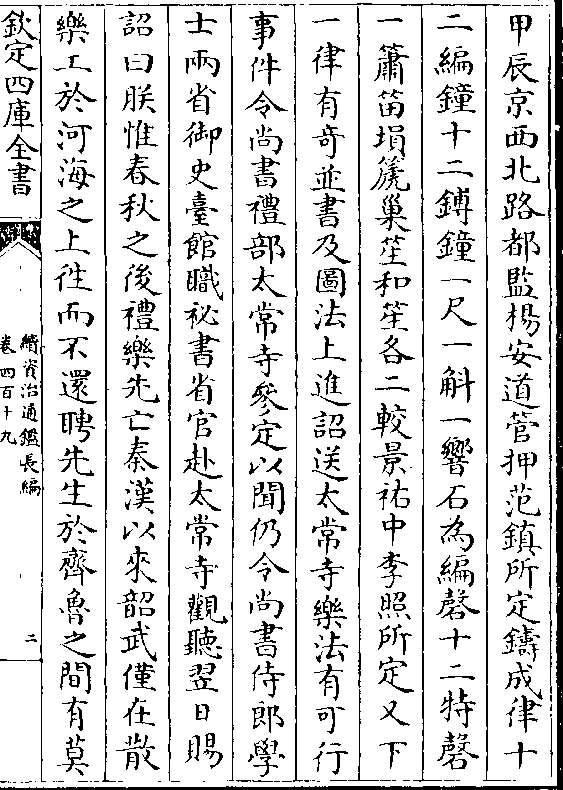 甲辰京西北路都監楊安道管押范鎮所定鑄成律十
二編鐘十二鎛鐘一尺一斛一響石為編磬十二特磬
一簫笛塤篪巢笙和笙各二較景祐中李照所定又下
一律有奇並書及圖法上進詔送太常寺樂法有可行
事件令尚書禮部太常寺參定以聞仍令尚書侍郎學
士兩省御史臺館職祕書省官赴太常寺觀聽翌日賜
詔曰朕惟春秋之後禮樂先亡秦漢以來韶武僅在散
樂工於河海之上徃而不還聘先生於齊魯之間有莫
欽定四庫全書
續資治通鑑長編
卷四百十九
二